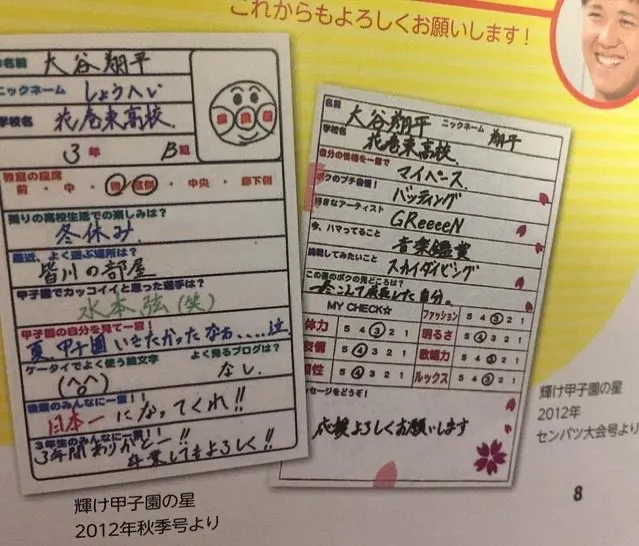 これからもよろしくお願いします!
名前 大谷翔平
ニックネーム しょうへい
学校名 花巻東高校
3年 B組
教室の座席
前・中・後 窓側・中央・廊下側
残りの高校生活での楽しみは?
冬休み
最近、よく遊ぶ場所は?
皆川の部屋
甲子園でカッコイイと思った選手は?
水本弦(笑)
甲子園の自分を見て一言!
夏、甲子園いきたかったなぁ....泣
ケータイでよく使う絵文字 よく見るブログは?
なし
後輩のみんなに一言!!
日本一になってくれ!!
3年生のみんなに一言!!
3年間ありがとー!!
卒業してもよろしく!!
輝け甲子園の星
2012年秋季号より
名前 大谷翔平 ニックネーム 翔平
学校名 花巻東高校
自分の性格を一言で
マイペース
ボクのプチ自慢!
バッティング
好きなアーティスト
GReeeeN
今、ハマってること
音楽鑑賞
挑戦してみたいこと
スカイダイビング
この春のボクの見どころは?
冬こして成長した自分。
MY CHECK☆
体力 5 4 3 2 1
ファッション 5 4 3 2 1
5 4 3 2 1
明るさ 5 4 3 2 1
5 4 3 2 1
歌唱力 5 4 3 2 1
5 4 3 2 1
ルックス 5 4 3 2 1
メッセージをどうぞ!
応援よろしくお願いします
輝け甲子園の星
2012年
センバツ大会号より
8